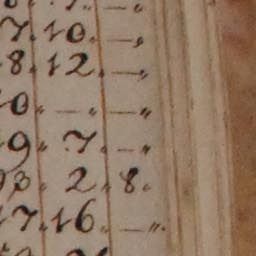 7. 10. —,
8. 12. —,
0. — . —,
9. 7. —.
93. 2. 8.
17. 16. —.